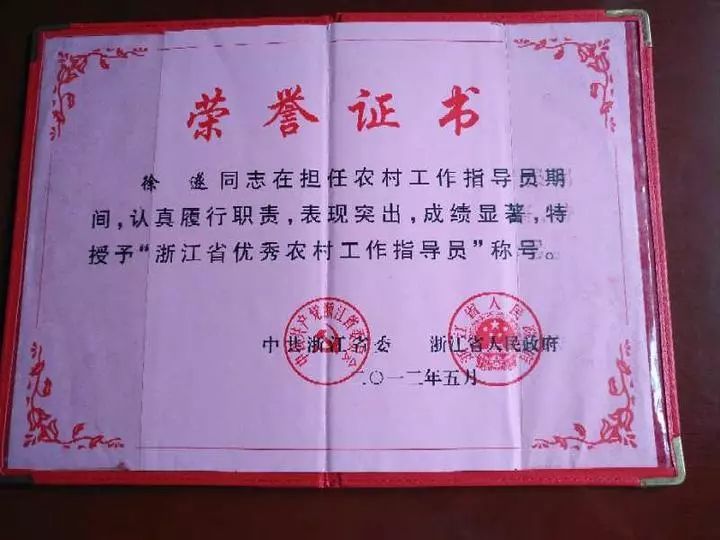 荣誉证书
徐遂同志在担任农村工作指导员期
间,认真履行职责,表现突出,成绩显著,特
授予“浙江省优秀农村工作指导员”称号。
中共浙江省委 浙江省人民政府
二〇一二年五月
中国共产党浙江省委员会
浙江省人民政府